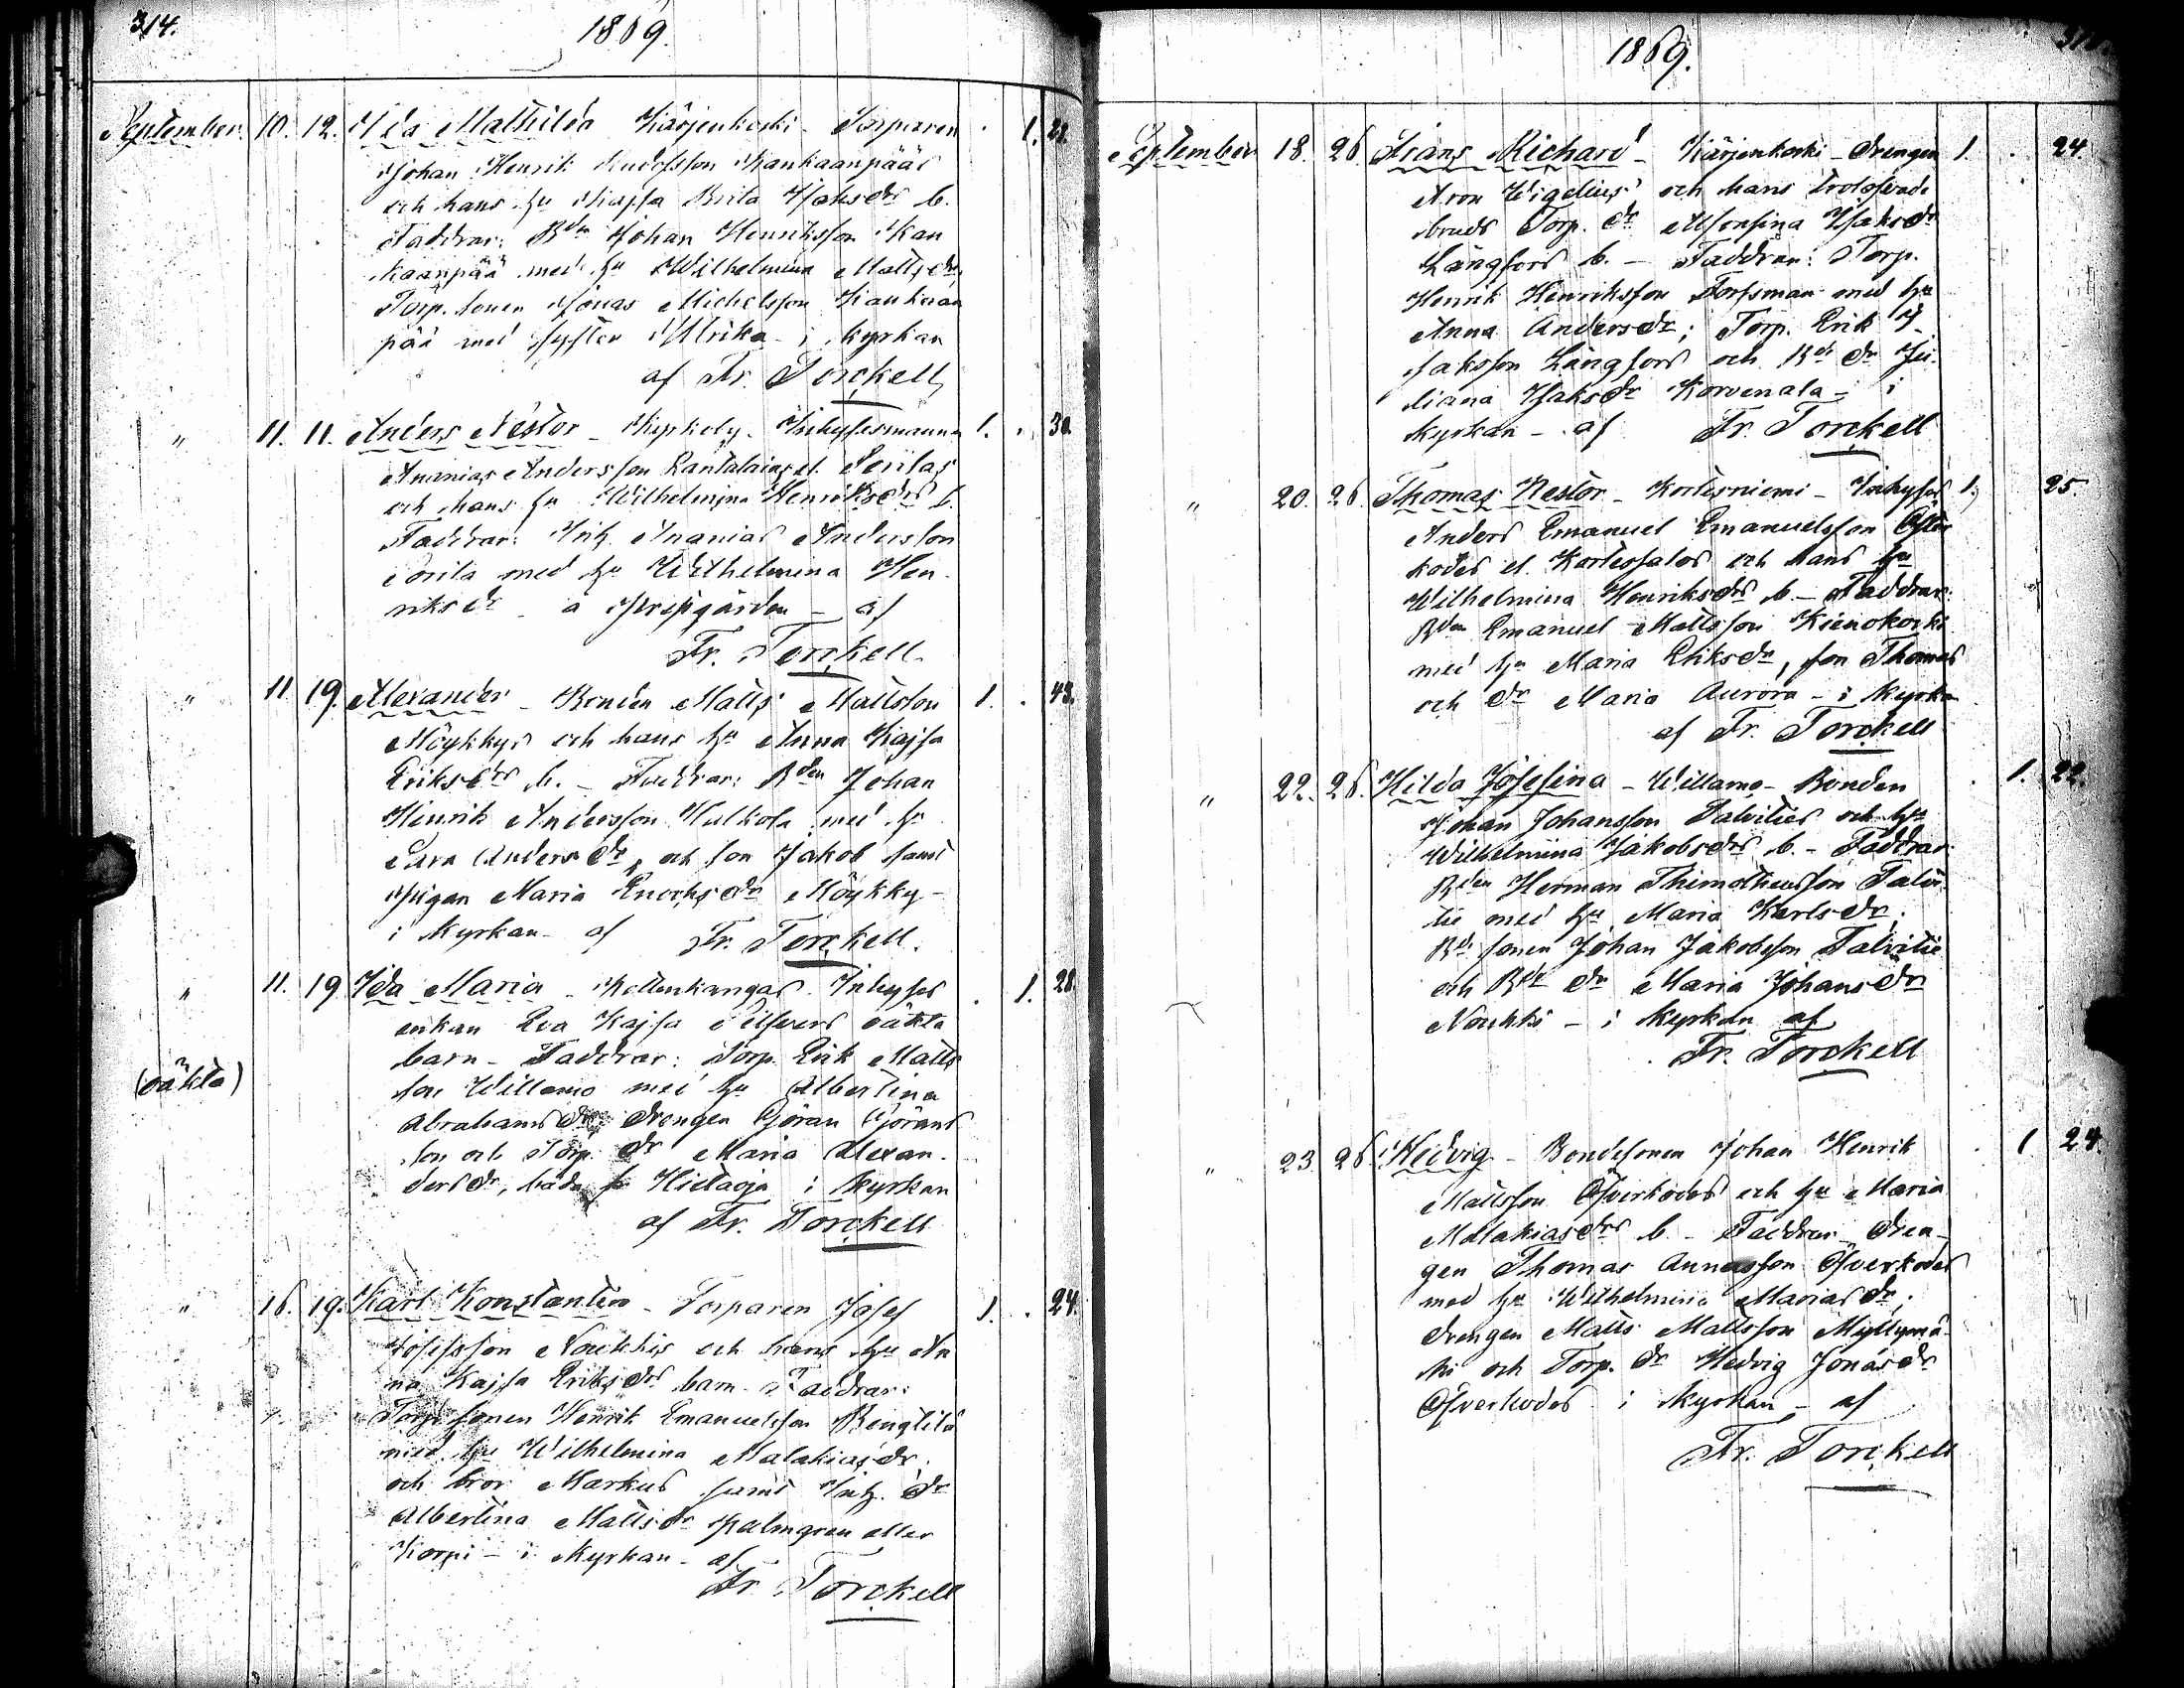 314.
1869.
September. 10. 12. Ida Mathilda Kärjenkoski - Torparen . 1. 28.
Johan Henrik Kankaanpääs
och hans hu Kajsa Brita Isaksdrs b.
Faddrar: Bdn Johan Henriksson Kan
kaanpää med hu Wilhelmina Mattsdr,
Torp. sonen Jonas Michelsson Kankaan
pää med syster Ulrika - i kyrkan
af Fr. Torckell
" 11. 11. Anders Nestor - Kyrkoby. Inhysesmannen 1. . 30.
Ananias Andersson Rantalais el. Serilas
och hans hu Wilhelmina Henriksdrs b.
Faddrar: Inh. Ananias Andersson
med hu Wilhelmina Hen-
riksdr - å prestgården - af
Fr. Torckell.
" 11. 19. Alexander - Bonden Matts Mattsson 1. . 43.
Möykkys och hans hu Anna Kajsa
Eriksdrs b. - Faddrar: Bden Johan
Henrik Andersson Hulkola med hu
Sara Andersdr, och son Jakob samt
pigan Maria Enochsdr Möykky -
i kyrkan - af Fr. Torckell.
" 11. 19 Ida Maria - Kettenkangas Inhyses . 1. 28.
(oäkta)
enkan Eva Kajsa oäkta
barn - Faddrar: Torp. Erik Matts
son Willamo med hu Albertina
Abrahamsdr; drengen Göran Görans
son och Torp. dr Maria Alexan-
dersdr, båda fr Hietaoja i kyrkan
af Fr. Torckell
" 16. 19. Karl Konstantin - Torparen Josef 1. . 24.
Josefsson Noukkis och hans hu An
na Kajsa Eriksdrs barn - Faddrar:
Torp. sonen Henrik Emanuelsson Rengtilä
med hu Wilhelmina Malakiasdr.
och bror Markus samt Inh. dr
Albertina Mattsdr Palmgren eller
Korpi - i kyrkan - af
Fr. Torckell
1869.
September 18. 26. Frans Richard - Kärjenkoski - drengen 1. . 24.
Aron Wigelius och hans trolofvade
bruds Torp. dr Alfonsina Isaksdr
Långfors b. - Faddrar: Torp.
Henrik Henriksson Forsman med hu
Anna Andersdr; Torp. Erik I-
saksson Långfors och Bde dr Ju-
liana Isaksdr Korvenala - i
kyrkan - af Fr. Torckell
" 20. 26. Thomas Nestor - Kortesniemi - Inhyses 1. 25.
Anders Emanuel Emanuelsson Öfver
kodes el. Kortessalos och hans hu
Wilhelmina Henriksdrs b. - Faddrar:
Bden Emanuel Mattsson Kienokoski
med hu Maria Eriksdr, son Thomas
och dr Maria Aurora - i kyrkan
af Fr. Torckell
" 22. 26. Hilda Josefina - Willamo - Bonden . 1. 22.
Johan Johansson Talvities och hu
Wilhelmina Jakobsdrs b. - Faddrar
Bden Herman Thimotheusson Talvi
tie med hu Maria Karlsdr;
Bde sonen Johan Jakobsson Talvitie
och Bde dr Maria Johansdr
Noukki - i kyrkan af
Fr. Torckell
" 23 26. Hedvig - Bondesonen Johan Henrik . 1 24.
Mattsson Öfverkodes och hu Maria
Malakiasdrs b. - Faddrar - dren-
gen Thomas Annasson Öfverkodes
med hu Wilhelmina Mariasdr,
drengen Matts Mattsson Myllymä-
ki och Torp. dr Hedvig Jonasdr
Öfverkodes i kyrkan - af
Fr. Torckell